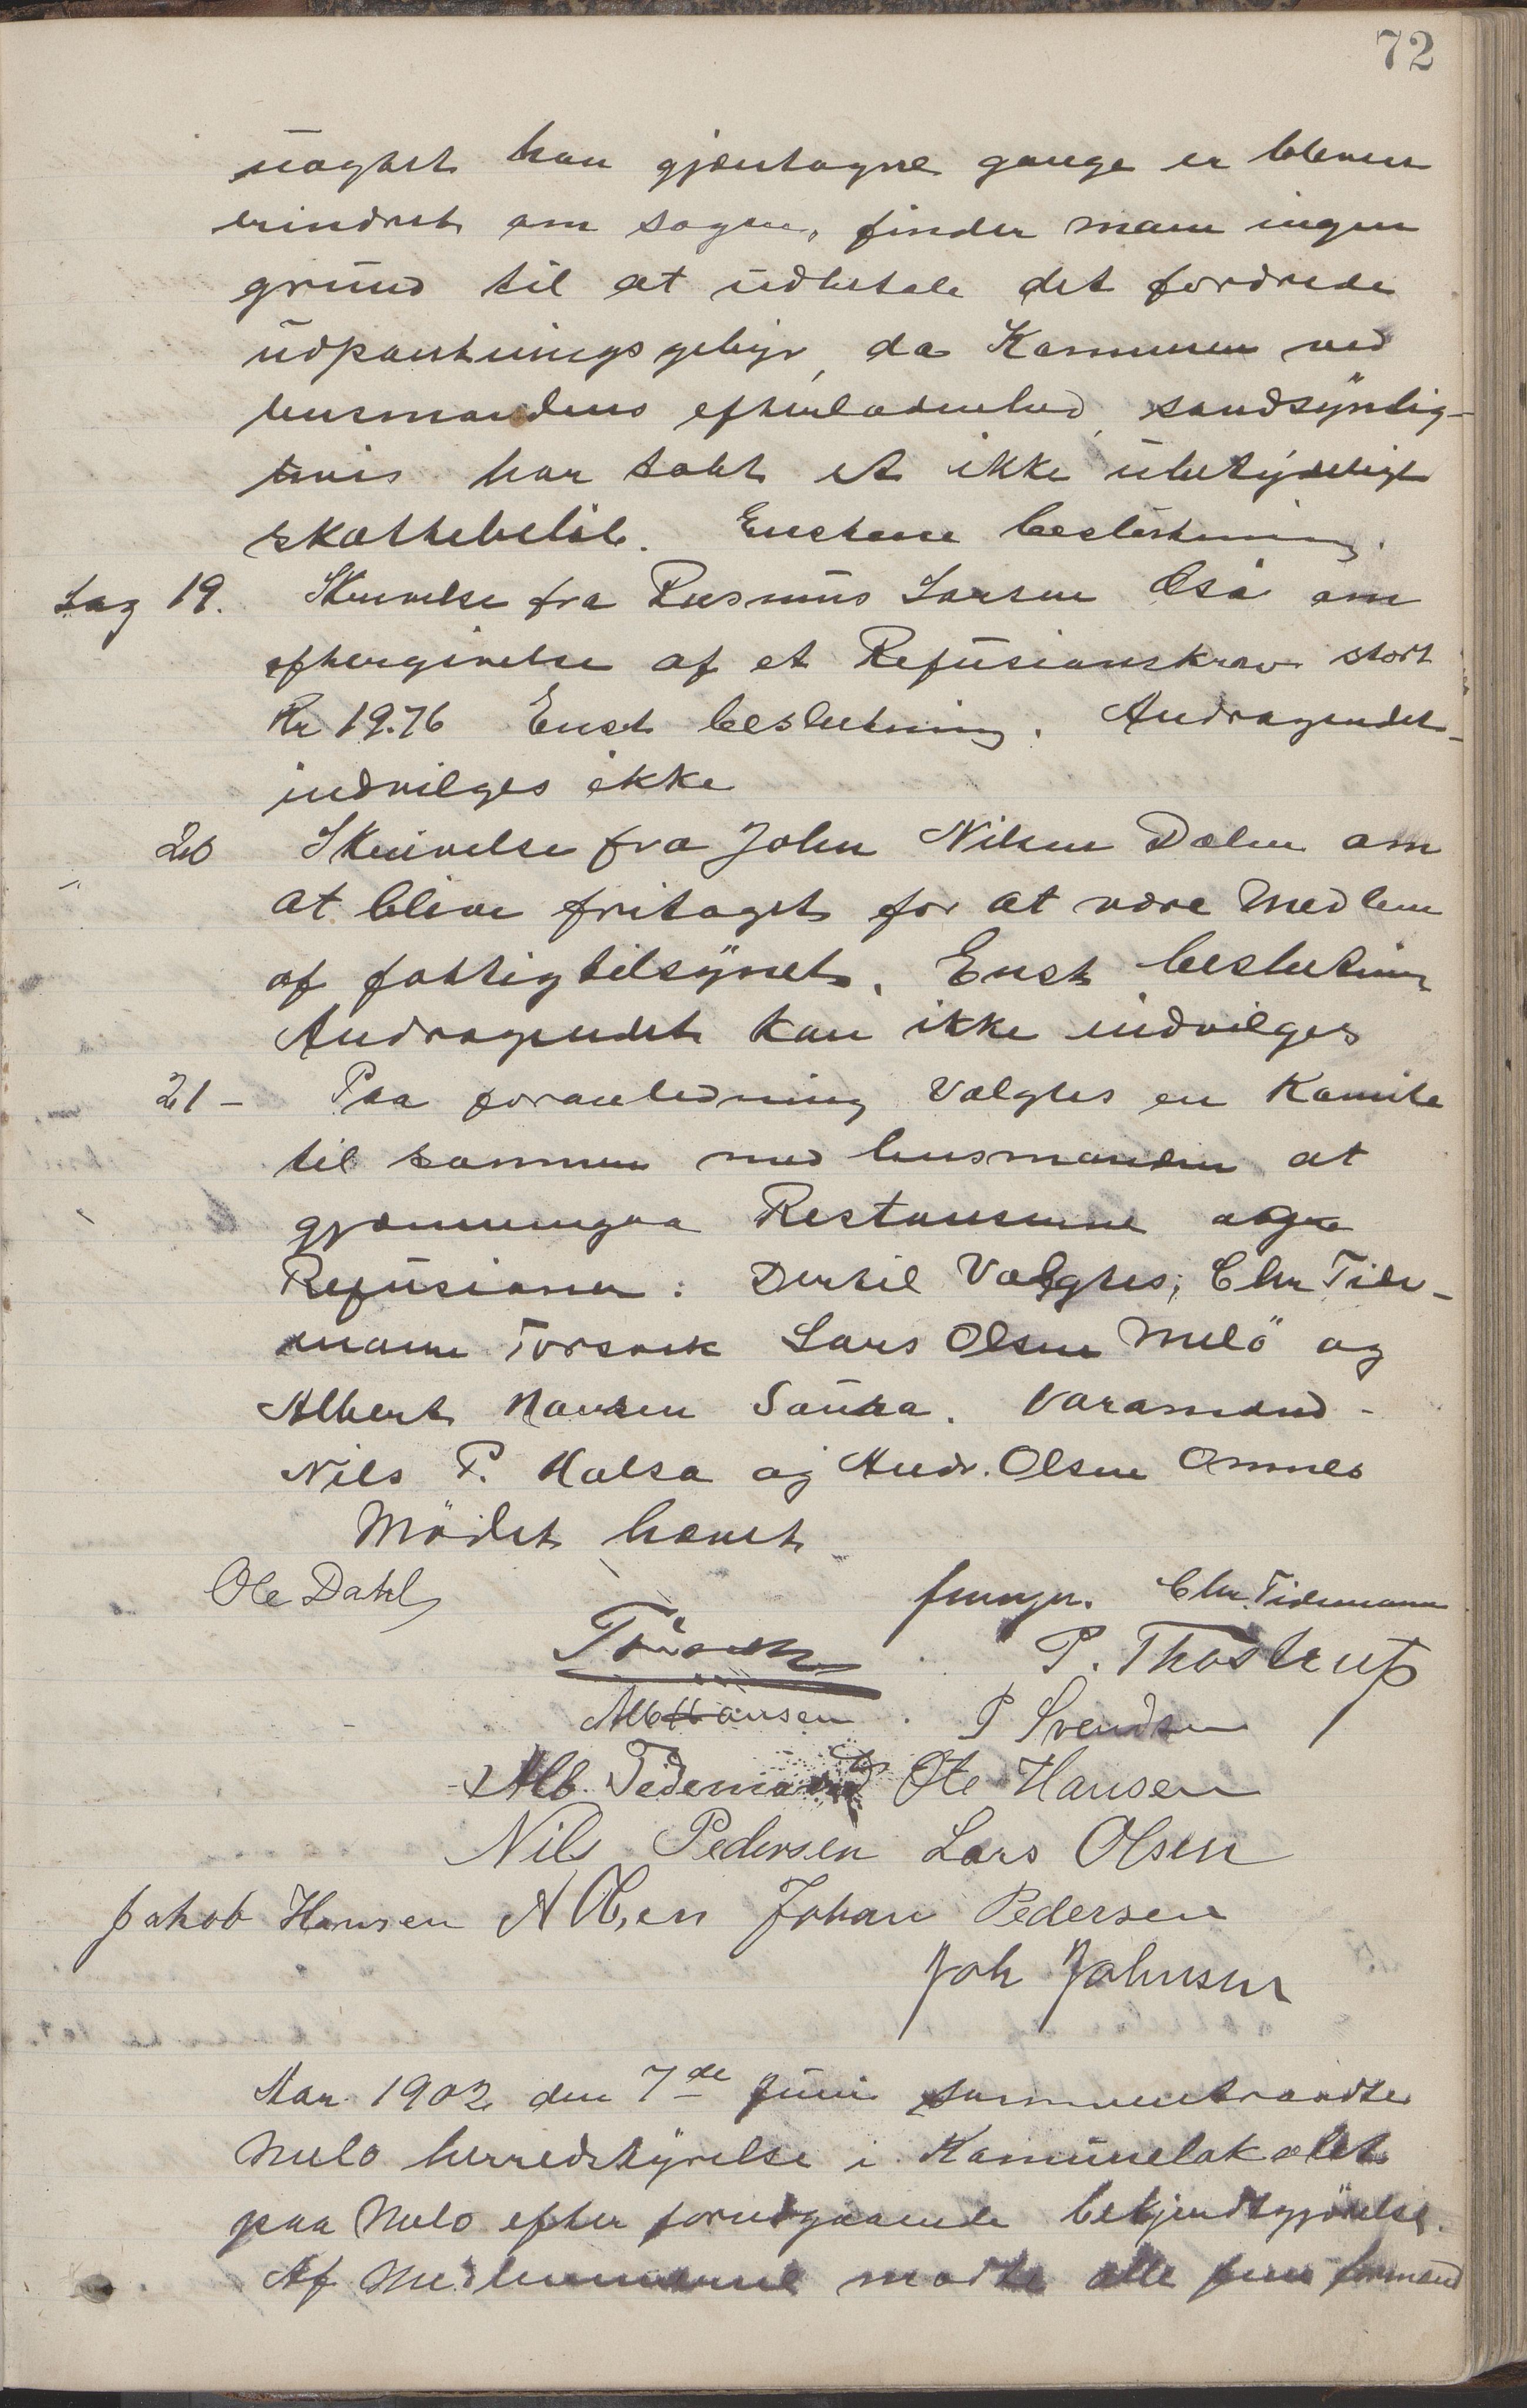 72
uagtet han gjentagne gange er bleven
erindret om sagen, finder man ingen
grund til at udbetale det fordrede
udpantningsgebyr, da Kommunen ved
lensmandens efterladenhed, sandsynlig-
vis har tabt et ikke ubetydeligt
skattebeløb. Enstem beslutning.
Sag 19. Skrivelse fra Rasmus Larsen Æså om
eftergivelse af et Refusionskrav stort
Kr 19.76 Enst beslutning. Andragendet
indvilges ikke
20 Skrivelse fra John Nilsen Dalen om
at blive fritaget for at være Medlem
af fattigtilsynet. Enst beslutning
Andragendet kan ikke indvilges
21 - Paa foranledning valgtes en Komite
til sammen med lensmanden at
gjennemgaa Restanserne og
Refusioner: Dertil Valgtes; Chr Tide-
mann Torsvik Lars Olsen Melö og
Albert Hansen Saura. Varamænd -
Nils P. Halsa og Andr. Olsen Omnes
Mödet hævet
Ole Dahl fungr. Chr. Tidemann
P. Thostrup
Alb Hansen P Svendsen
Alb. Tidemand Ole Hansen
Nils Pedersen Lars Olsen
Jakob Hansen A Olsen Johan Pedersen
Joh Johnsen
Aar 1902 den 7de Juni sammentraadte
Melö herredstyrelse i Kommunelokalet
paa Melö efter forudgaaende bekjendtgjörelse.
Af Medlemmerne mødte alle formænd